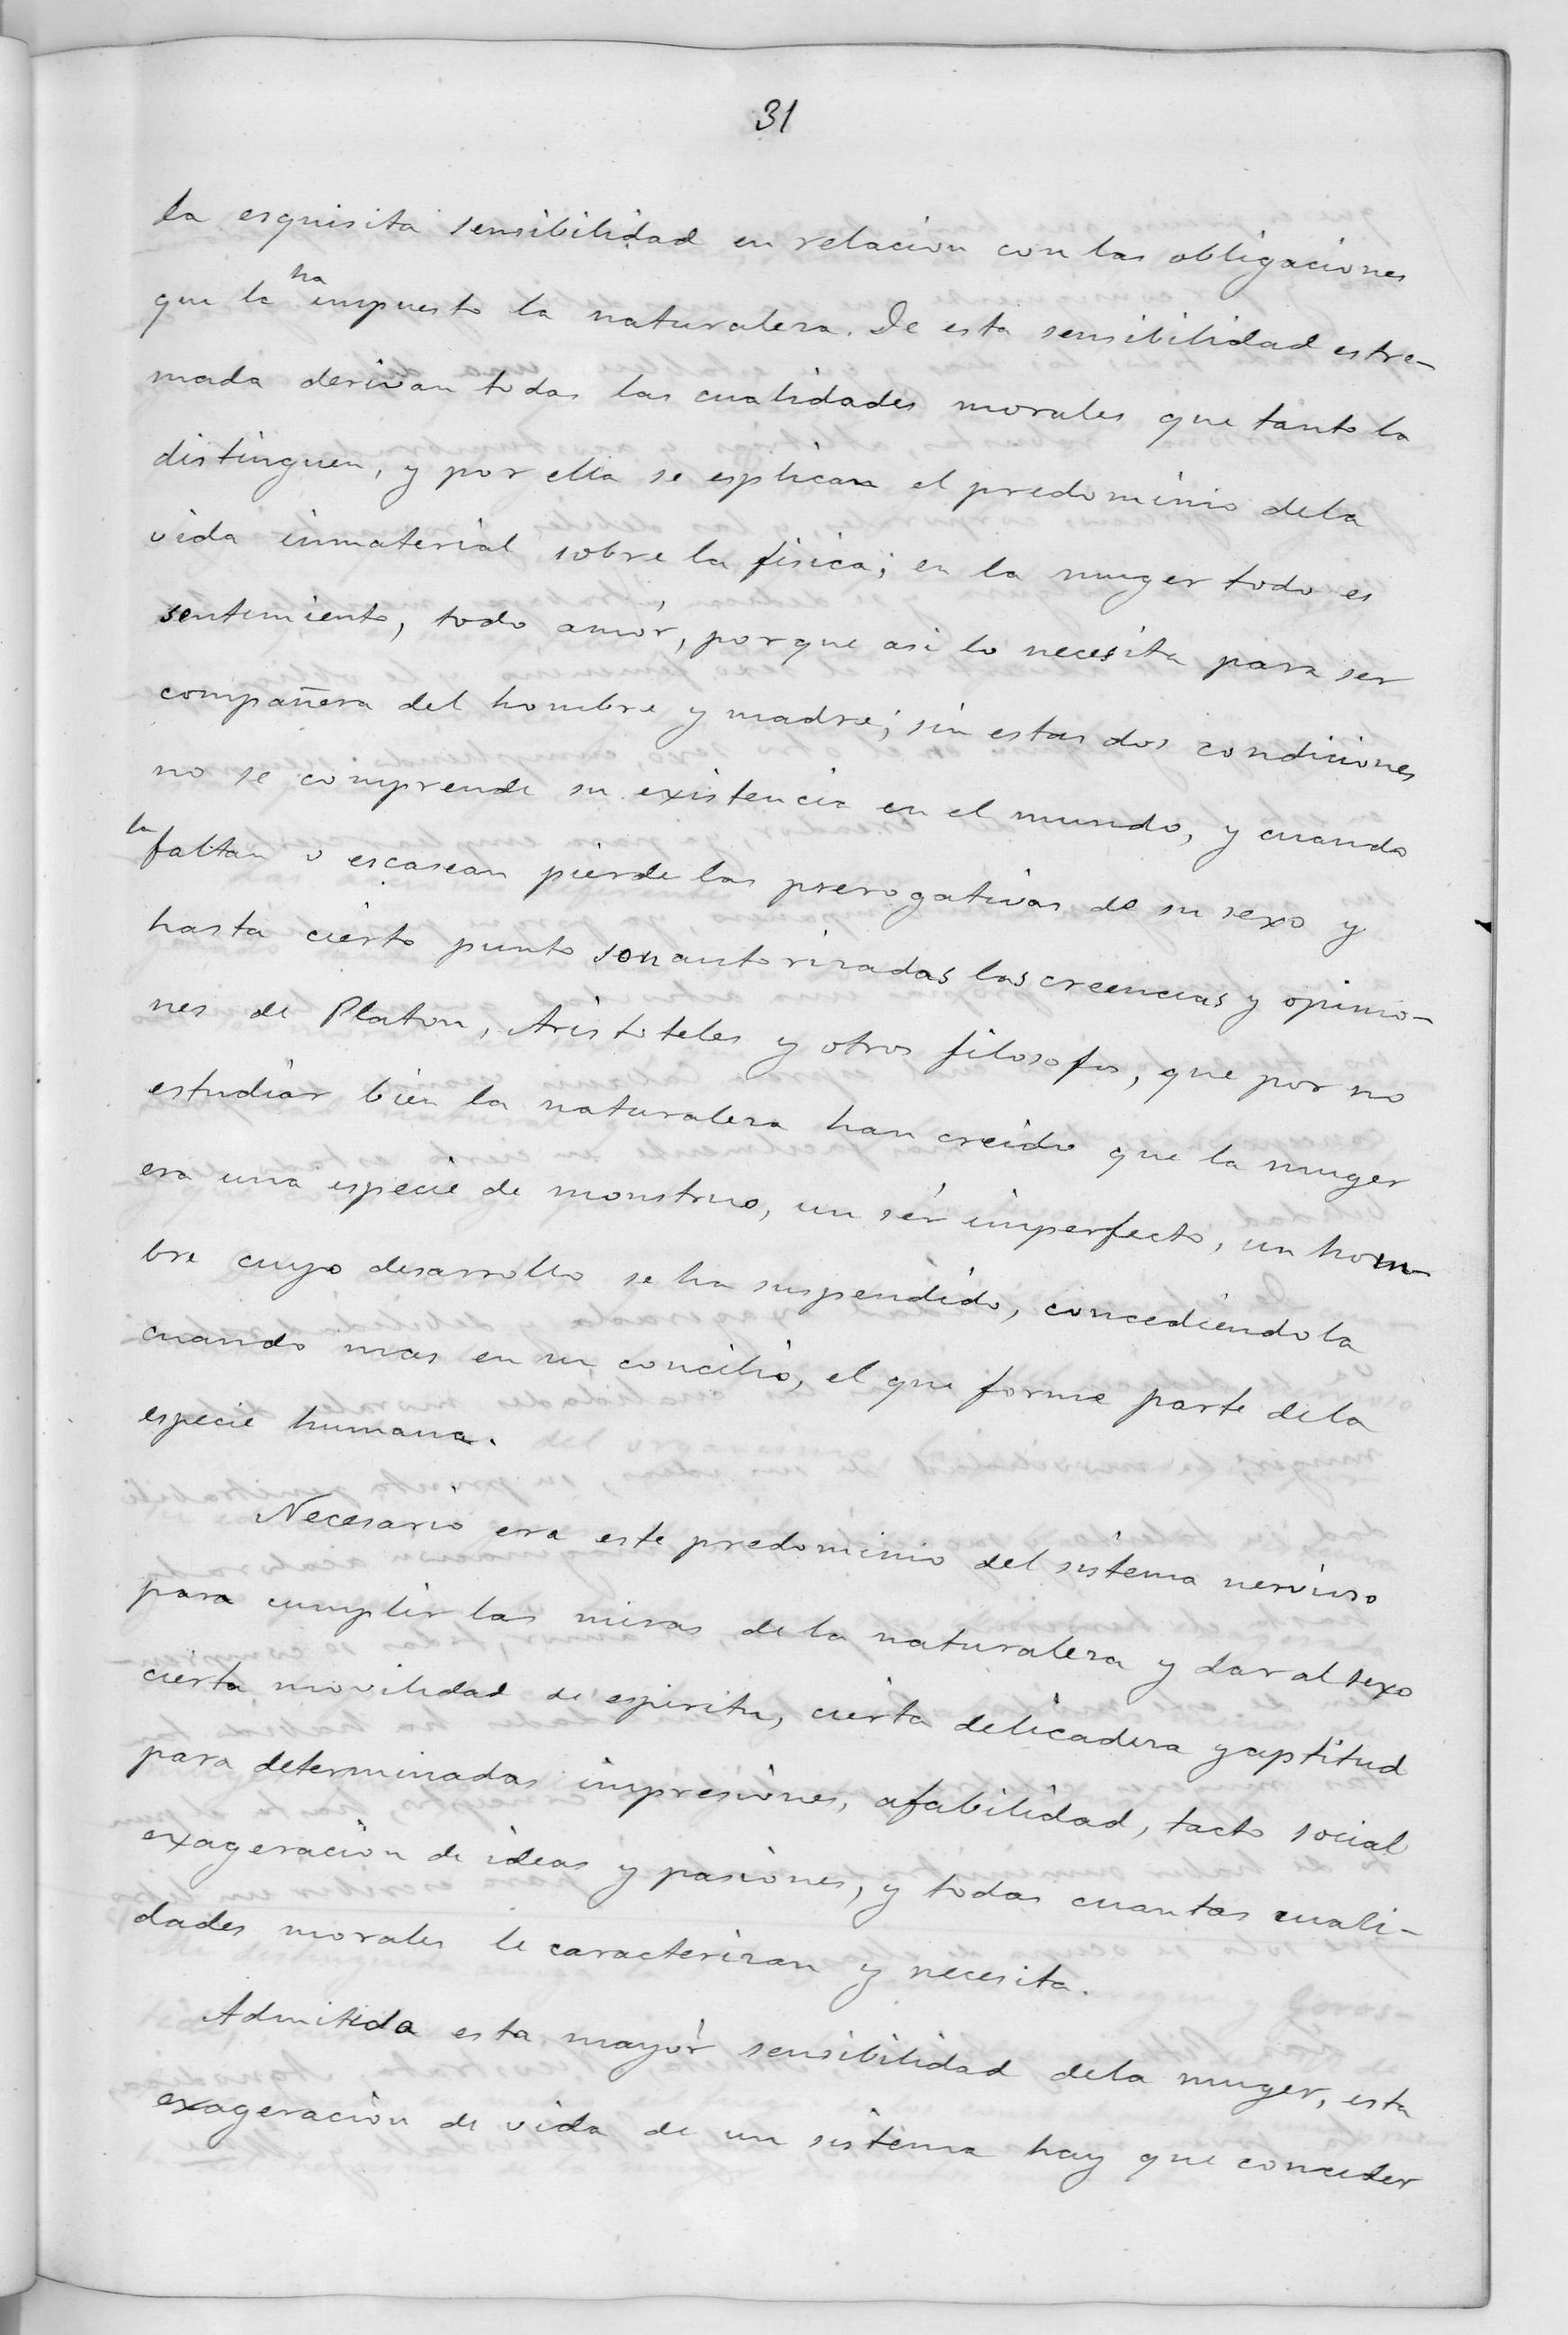 31
la esquisita sensibilidad en relacion con las obligaciones
que la ha impuesto la naturaleza. De esta sensibilidad estre-
mada derivan todas las cualidades morales que tanto la
distinguen, y por ella se esplicara el predominio dela
vida inmaterial sobre la fisica; en la muger todo es
sentimiento, todo amor, porque asi lo necesita para ser
compañera del hombre y madre; sin estas dos condiciones
no se comprende su existencia en el mundo, y cuando
la faltan o escasean pierde las prerogativas de su sexo y
hasta cierto punto son autorizadas las creencias y opinio-
nes de Platon, Aristoteles y otros filosofos, que por no
estudiar bien la naturaleza han creido que la muger
era una especie de monstruo, un sér imperfecto, un hom-
bre cuyo desarrollo se ha suspendido, concediendola
cuando mas en un concilio, el que forme parte dela
especie humana.
Necesario era este predominio del sistema nervioso
para cumplir las miras dela naturaleza y dar al sexo
cierta movilidad de espiritu, cierta delicadeza y aptitud
para determinadas impresiones, afabilidad, tacto social
exageracion de ideas y pasiones, y todas cuantas cuali-
dades morales le caracterizan y necesita.
Admitida esta mayor sensibilidad dela muger, esta
exageracion de vida de un sistema hay que conceder